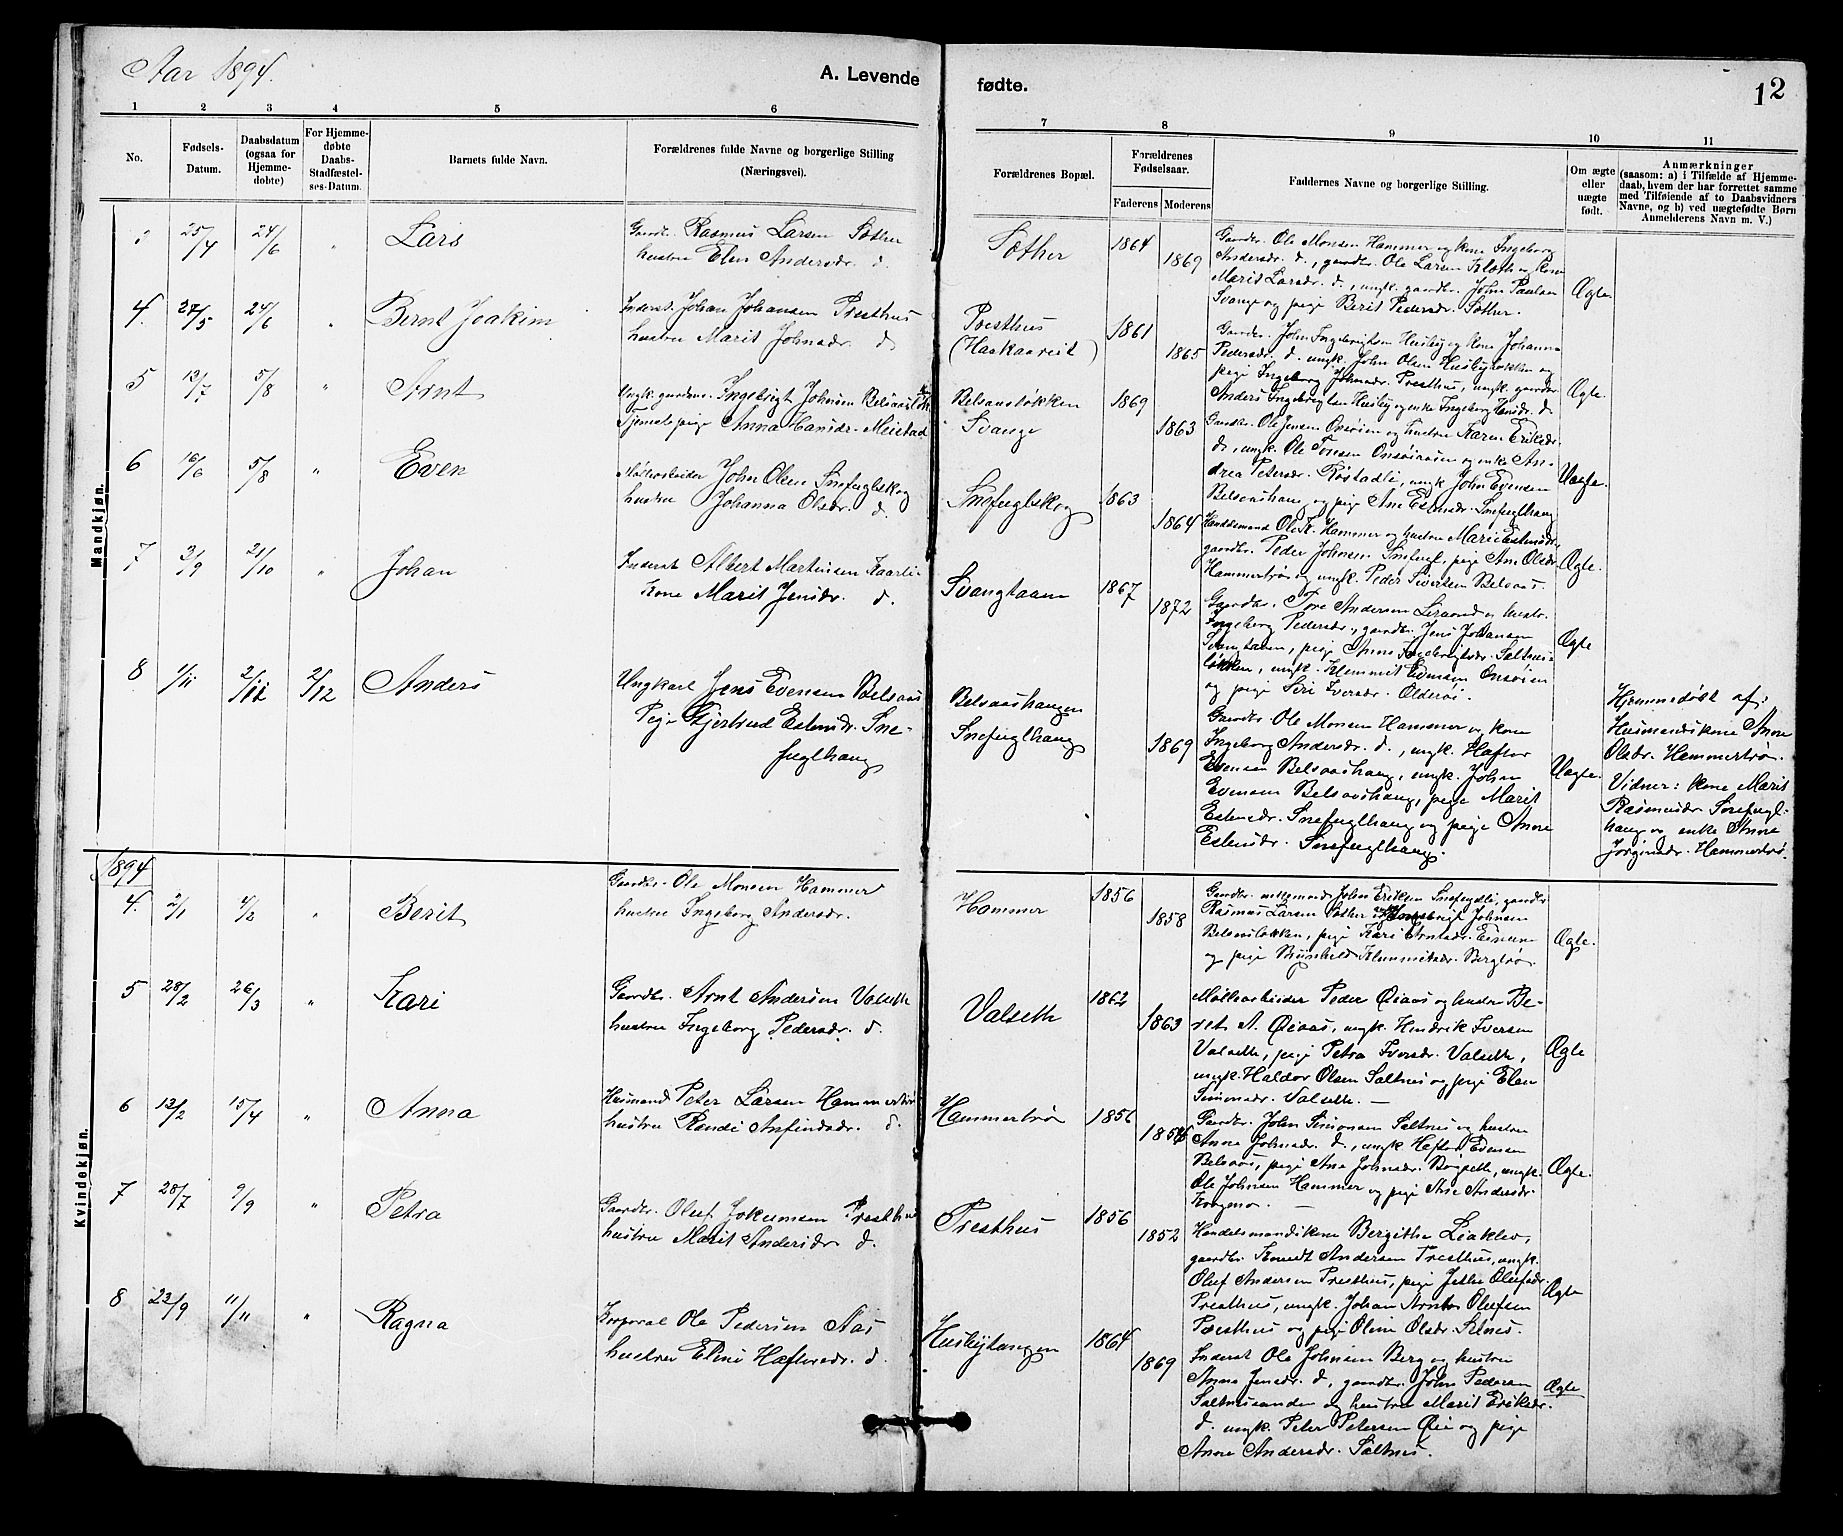 Aar 1894.
A. Levende fødte.
12
1 2 3 4 5 6 7 8 9 10 11
No.
Fødsels-Datum.
Daabsdatum (ogsaa for Hjemmedøbte)
For Hjemmedøbte Daabs-Stadfæstelses-Datum.
Barnets fulde Navn.
Forældrenes fulde Navne og borgerlige Stilling (Næringsvei).
Forældrenes Bopæl.
Forældrenes Fødselsaar.
Faderens Moderens
Faddernes Navne og borgerlige Stilling.
Om ægte eller uægte født.
Anmærkninger
(saasom: a) i Tilfælde af Hjemmedaab, hvem der har forrettet samme med Tilføiende af to Daabsvidners Navne, og b) ved uægtefødte Børn Anmelderens Navn m. V.)
Mandkjøn.
3 25/4 24/6 " Lars
Gaardbr. Rasmus Larsen Sæther
hustru Elen Andersdr. d.
Sæther 1864 1869
Gaardbr. Ole Monsen Hammer og kone Ingeborg
Andersdr. d., gaardbr. Ole Larsen Kloth og kone
Marit Larsdr. d., ungk. gaardbr. John Paulsen
Svange og pige Berit Pedersdr. Sæther.
Ægte
4. 27/5 24/6 " Bernt Joakim
Inderst. Johan Johansen Presthus
hustru Marit Johnsdr. d
Presthus
(Haakaareit)
1861 1865
Gaardbr. John Ingebrigtsen Husby og kone Johanna
Pedersdr. d. ungk. John Olsen Husbyløkken og
pige Ingeborg Johnsdr. Presthus, ungk. gaardbr
Anders Ingebrigtsen Husby og enke Ingeborg Hansdr. d.
Ægte.
5 12/7 5/8 " Arnt
Ungk. gaardms. Ingebrigt Johnsen Belsaasløk
Tjenestepige Anna Hansdr. Meistad
Belsaasløkken
Svange
1869 1863
Gaardbr. Ole Jensen Onsøien og hustru Karen Eriksdr.
d., ungk. Ole Tonsen Onsøiaasen og enke An-
drea Petersdr. Røstadli, ungk John Evensen
Belsaashaug og pige Ane Estensdr. Snefuglhaug
Uægte.
6 16/6 5/8 " Even
Mølleabeider John Olsen Snefuglskog
hustru Johanna Olsdr. d.
Snefuglskog 1863 1864
Handelsmand Ole K. Hammer og hustru Marie Estensdr.
gaardbr. Peder Johnsen Snefugl, pige Ane Olsdr.
Hammertrø og ungk. Peder Sivertsen Belsaas.
Ægte.
7 3/9 21/10 " Johan
Inderst Albert Martinsen Kaarli
Kone Marit Jensdr. d.
Svangtaam 1867 1872
Gaardbr. Tore Andersen Leraand og hustr.
Ingeborg Pedersdr., gaardbr. Jens Johansen
Svangtaam, pige Anne Ingebrigtsdr. Saltnes-
løkken, ungk. Klemmet Evensen Onsøien
og pige Siri Iversdr. Olderøi.
Ægte
8 1/11 2/11 2/12 Anders
Ungkarl Jens Evensen Belsaas
Pige Gjertrud Estensdr. Sne-
fuglhaug
Belsaashaugen
Snefuglhaug
1869
Gaardbr. Ole Monsen Hammer og kone
Ingeborg Andersdr. d., ungk. Haftor
Evensen Belsaashaug, ungk. Johan
Evensen Belsaashaug, pige Marit
Estensdr. Snefuglhaug og pige Anne
Estensdr. Snefuglhaug.
Uægte.
Hjemmedøbt af:
Husmandskone Anne
Olsdr. Hammertrøn.
Vidner: kone Marit
Rasmusdr. Snefugl-
haug og enke Anne
Jørginsdr. Hammertrø.
1894
Kvindekjøn.
4. 2/1 4/2 " Berit
Gaardbr. Ole Monsen Hammer
hustru Ingeborg Andersdr.
Hammer 1856 1858
Gaardbr. ungk. John Eriksen Snefugli, gaardbr
Rasmus Larsen Sæther ungk. Ingebrigt Johnsen
Belsaasløkken, pige Kari Arntsdr. Eimine
og pige Brynhild Klemmetsdr. Bergtrø.
Ægte.
5 28/2 26/3 " Kari
Gaardbr. Arnt Andersen Valseth
hustru Ingeborg Pedersdr. d.
Valseth 1862 1863
Møllearbeider Peder Øiaas og hustru Be-
ret A. Øiaas, ungk. Hendrik Iversen
Valseth, pige Petra Iversdr. Valseth,
ungk. Haldor Olsen Saltnes og pige Elen
Simonsdr. Valseth. —
Ægte
6 12/2 15/4 " Anna
Husmand Peter Larsen Hammertrø
hustru Randi Anfindsdr. d.
Hammertrøn 1856 1854
Gaardbr. John Simonsen Saltnes og hustru
Anne Johnsdr. d., ungk Haftor Evensen
Belsaas, pige Ane Johnsdr. Bøgseth, ungk.
Ole Johnsen Hammer og pige Ane Andersdr.
Krogenes. —
Ægte.
7 28/7 9/9 " Petra
Gaardbr. Oluf Jokumsen Presthus
hustru Marit Andersdr. d.
Presthus 1856 1852
Handelsmandskone Bergithe Liaklev,
gaardbr. Knudt Andersen Presthus, ungk.
Oluf Andersen Presthus, pige Jette Olufsdr.
Presthus, ungk. Johan Arnt Olufsen
Presthus og pige Oline Olsdr. Selnes.
Ægte
8 23/9 11/11 " Ragna
Korporal Ole Pedersen Aas
hustru Eline Haftorsdr. d.
Husbytangen 1864 1869
Inderst Ole Johnsen Berg og hustru
Anne Jensdr. d, gaardbr. John Pedersen
Saltnessanden og hustru Marit Eriksdr.
d. ungk. Peter Petersen Øie og pige
Anne Andersdr. Saltnes.
Ægte